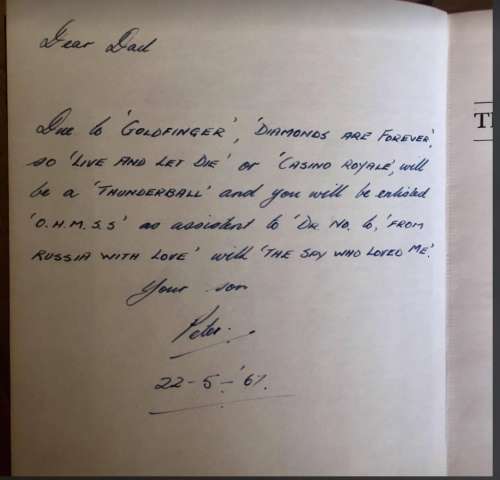 Dear Dad
Due to 'GOLDFINGER', 'DIAMONDS ARE FOREVER',
so 'LIVE AND LET DIE' or 'CASINO ROYALE', will
be a 'THUNDERBALL' and you will be enlisted
'O.H.M.S.S' as assistent to 'DR. NO. to, 'FROM
RUSSIA WITH LOVE' with 'THE SPY WHO LOVED ME'.
Your son
Peter.
22-5-'67.
T